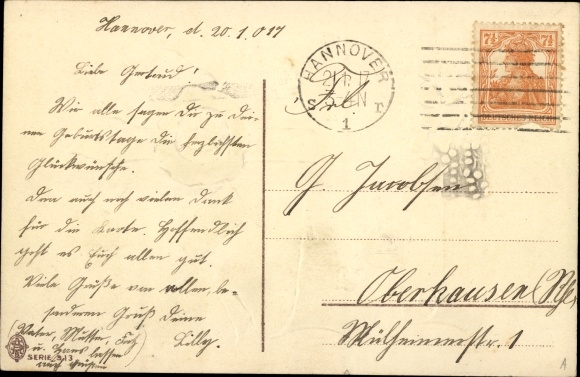 Hannover, d. 20.1.017
Liebe Gertrud!
Wir alle sagen dir zu dei-
nen Geburtstage die herzlichsten
Glückwünsche.
Dan auch noch vielen Dank
für die Karte. Hoffendlich
geht es Euch allen gut.
Viele Grüße von allen, be-
sonderen Gruß deine
Lilly.
(Vater, Mutter,
u. Hans lassen
auch grüßen
SERIE 313
HANNOVER
1
7½ 7½
DEUTSCHES REICH
G. Jacobsen
Oberhausen (Rhl.)
Mülheimerstr. 1
A